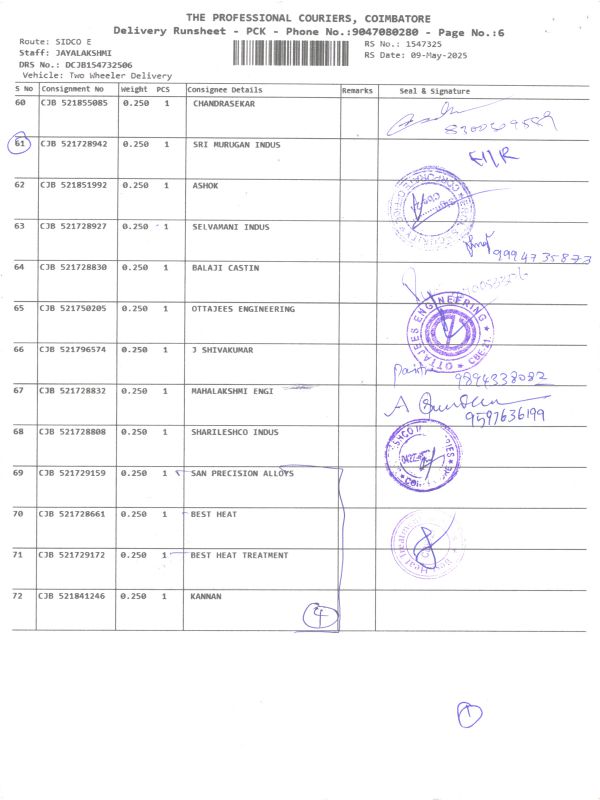 THE PROFESSIONAL COURIERS, COIMBATORE
Delivery Runsheet - PCK - Phone No.:9047080280 - Page No.:6
Route: SIDCO E
Staff: JAYALAKSHMI
DRS No.: DCJB154732506
Vehicle: Two Wheeler Delivery
RS No.: 1547325
RS Date: 09-May-2025
S No Consignment No Weight PCS Consignee Details Remarks Seal & Signature
60 CJB 521855085 0.250 1 CHANDRASEKAR
61 CJB 521728942 0.250 1 SRI MURUGAN INDUS
62 CJB 521851992 0.250 1 ASHOK
63 CJB 521728927 0.250 1 SELVAMANI INDUS 9994735873
64 CJB 521728830 0.250 1 BALAJI CASTIN
65 CJB 521750205 0.250 1 OTTAJEES ENGINEERING
OTTAJEES ENGINEERING * CBE-21. *
66 CJB 521796574 0.250 1 J SHIVAKUMAR 9894338082
67 CJB 521728832 0.250 1 MAHALAKSHMI ENGI 9597636199
68 CJB 521728808 0.250 1 SHARILESHCO INDUS
69 CJB 521729159 0.250 1 SAN PRECISION ALLOYS
70 CJB 521728661 0.250 1 BEST HEAT
71 CJB 521729172 0.250 1 BEST HEAT TREATMENT
72 CJB 521841246 0.250 1 KANNAN
4